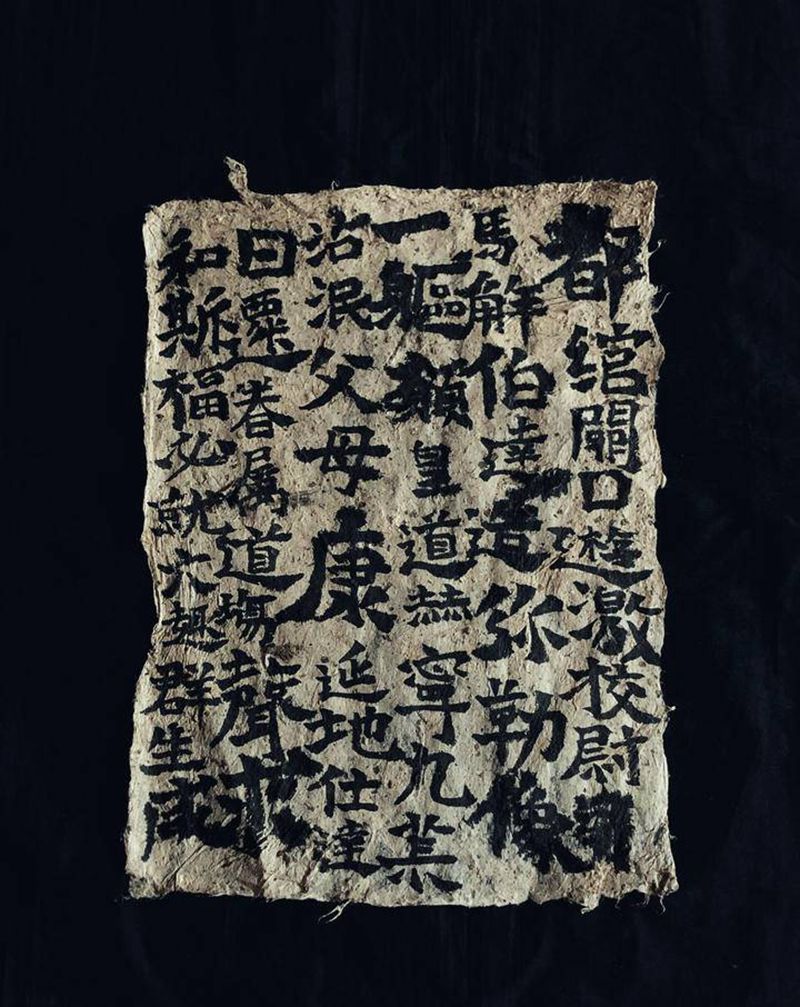 都綰關口遊激校尉
馬解伯達造弥勒像
一軀願皇道赫寧九荒
沾泯父母康延地仕達
日遷眷属道場聲求
和斯福必就六趣群生咸